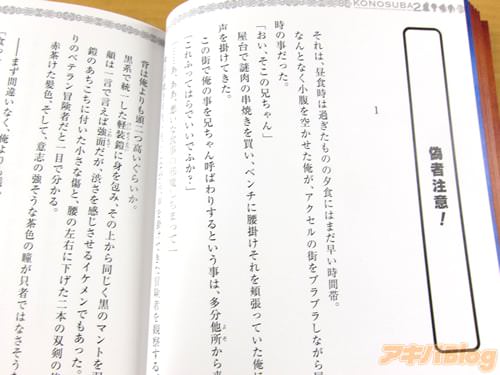 KONOSUBA
偽者注意！
1
それは、昼食時は過ぎたものの夕食にはまだ早い時間帯。
なんとなく小腹を空かせた俺が、アクセルの街をブラブラしながら屋
時の事だった。
「おい、そこの兄ちゃん」
屋台で謎肉の串焼きを買い、ベンチに腰掛けそれを頬張っていた俺に
声を掛けてきた。
この街で俺の事を兄ちゃん呼ばわりするという事は、多分他所から来
よそ
「これふってはらでいいでふか？」
背は俺よりも頭二つ高いぐらいか。
黒系で統一した軽装鎧に身を包み、その上から同じく黒のマントを羽
顔は一言で言えば強面だが、渋さを感じさせるイケメンでもあった。
鎧のあちこちに付いた小さな傷と、腰の左右に下げた二本の双剣の
りのベテラン冒険者だと一目で分かる。
赤茶けた髪色、そして、意志の強そうな茶色の瞳が只者ではなさそうな
――まず間違いなく、俺よりも
アキバBlog